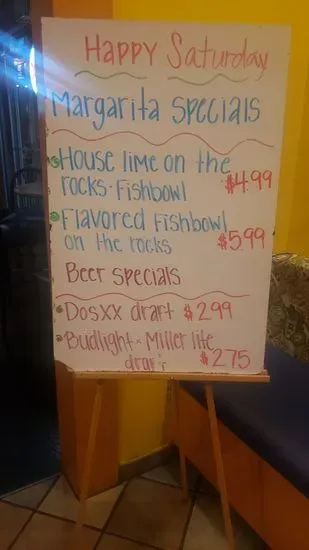 Happy Saturday
Margarita specials
House lime on the
rocks - Fishbowl $4.99
Flavored Fishbowl
on the rocks $5.99
Beer specials
Dosxx draft $2.99
Budlight - Miller lite
draft $2.75